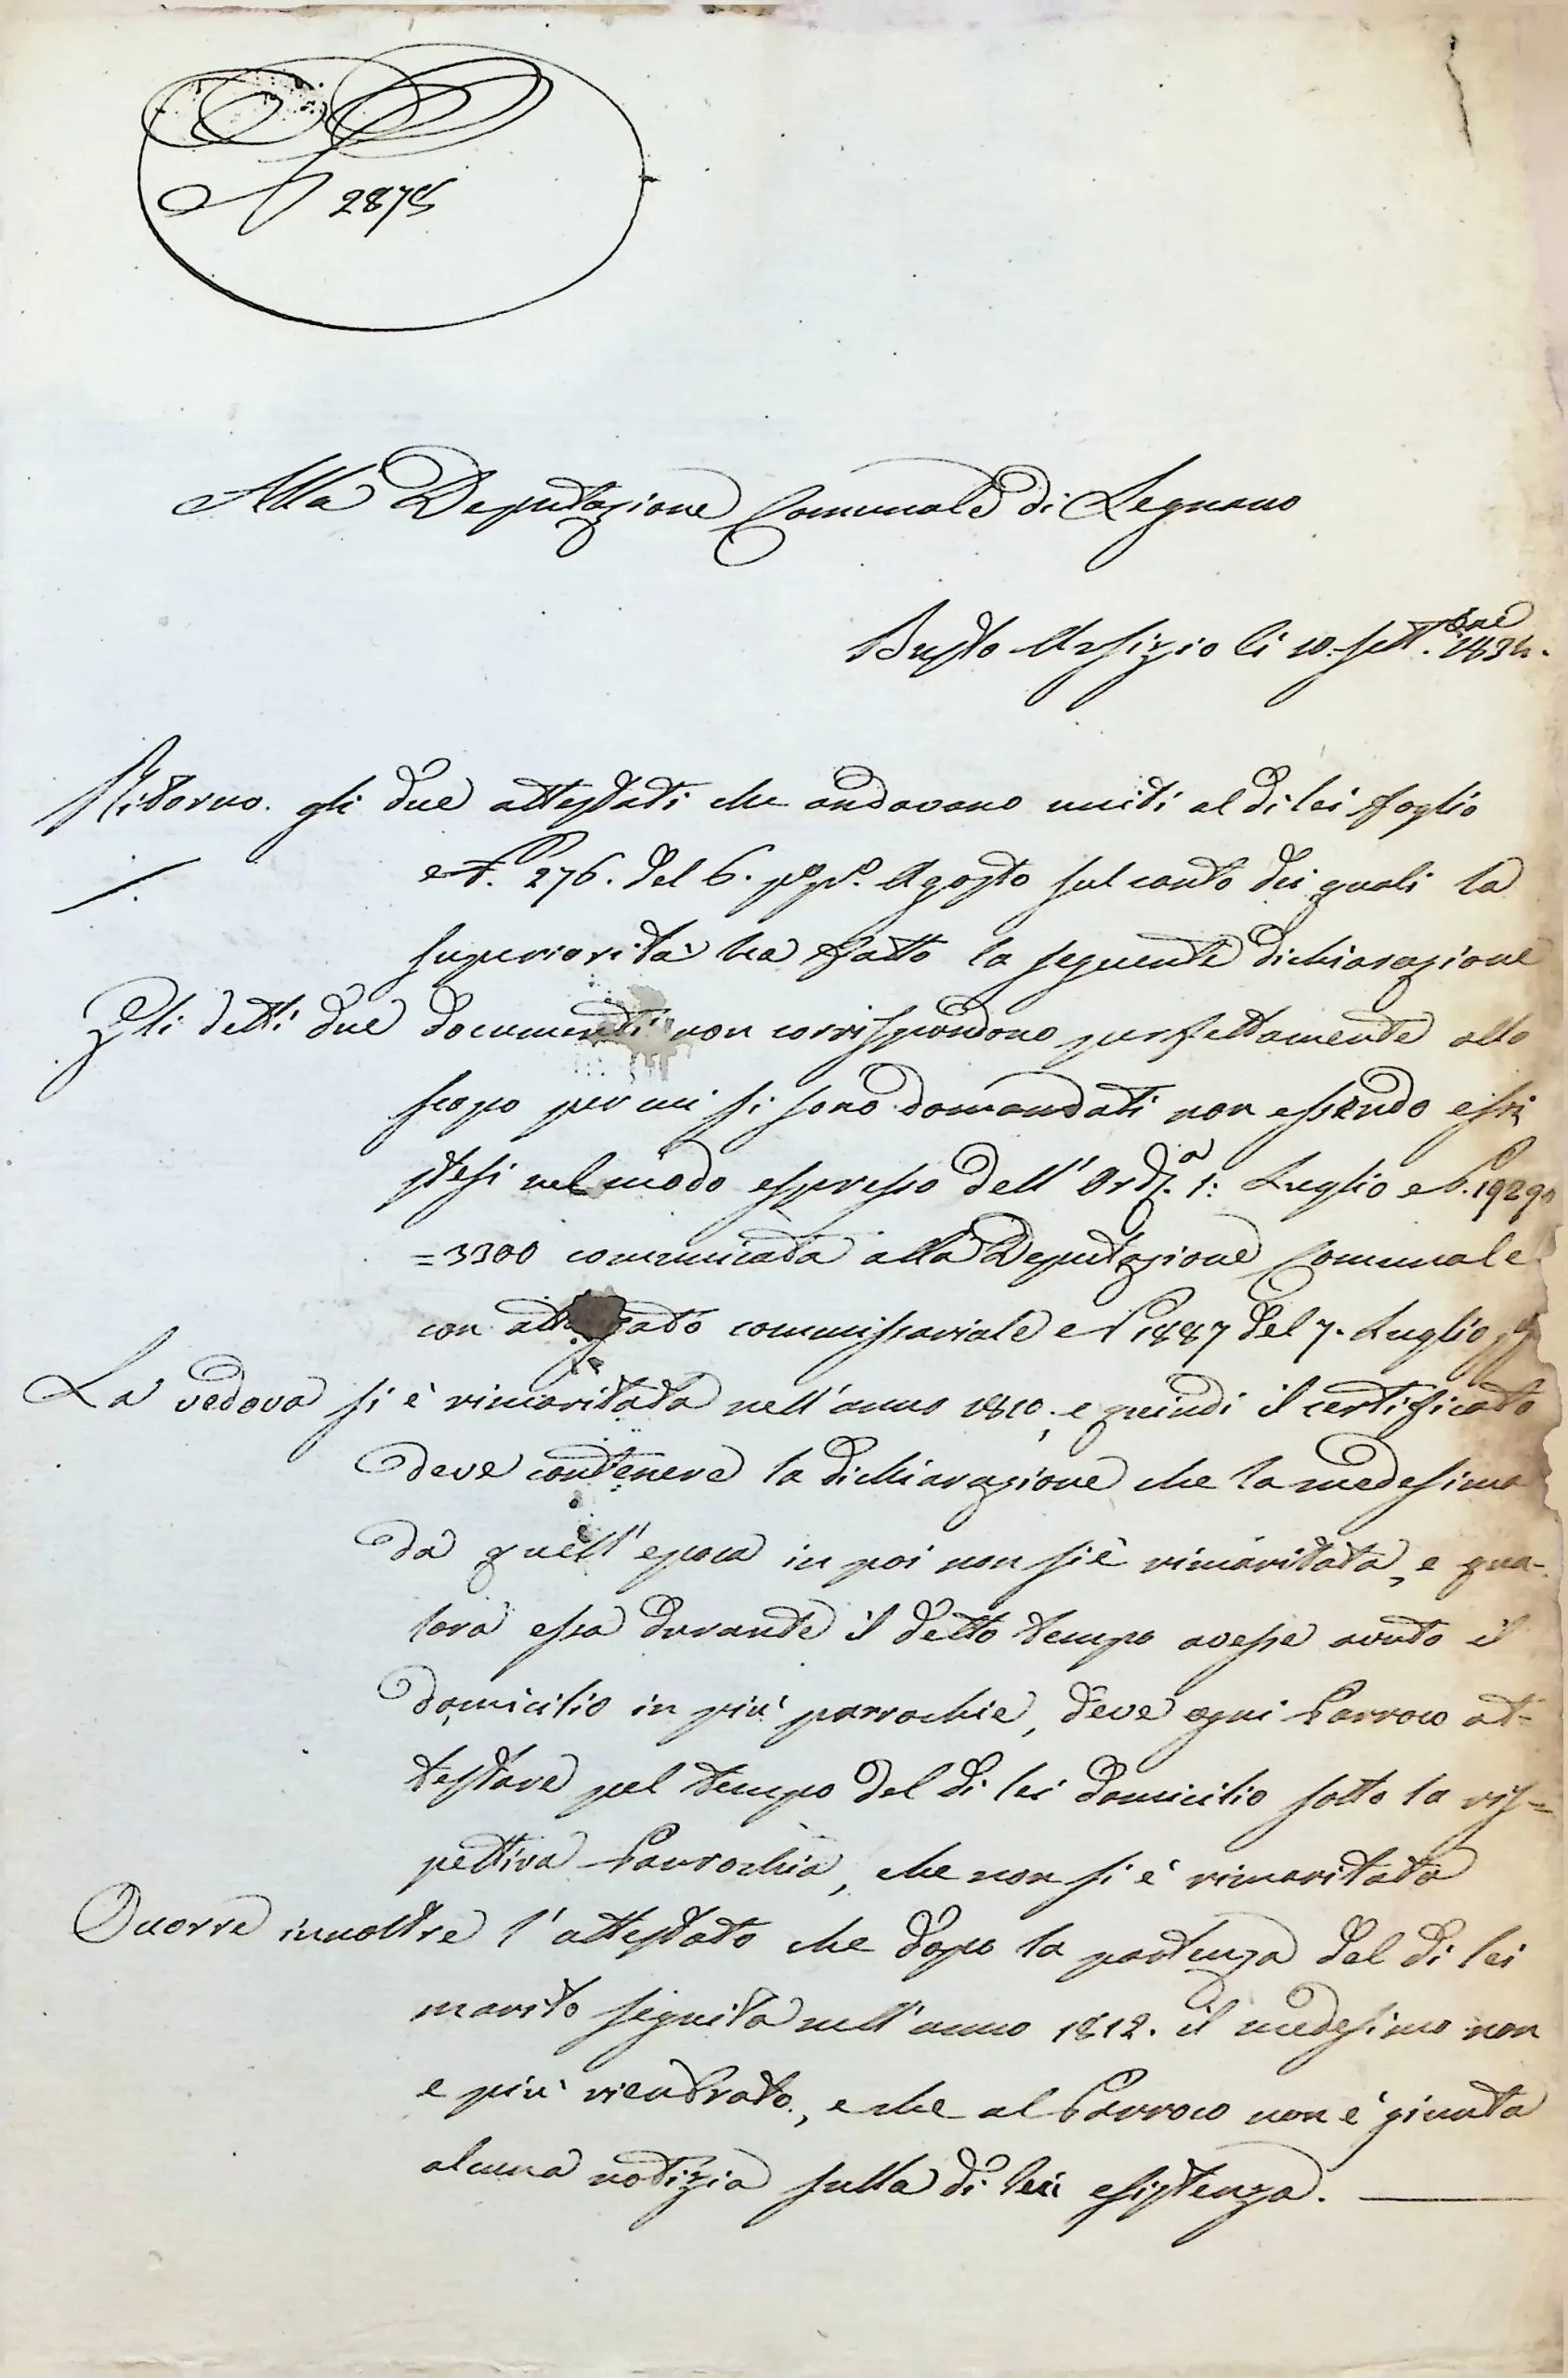 N 2875
Alla Deputazione Comunale di Legnano
Busto Arsizio li 10. Sett.bre 1834.
Ritorno gli due attestati che andavano uniti al di lei foglio
N. 276. del 6. p.o p.o Agosto sul conto dei quali la
superiorità ha fatto la seguente dichiarazione
Gli detti due documenti non corrispondono perfettamente allo
scopo per cui si sono domandati non essendo essi
stesi nel modo espresso dell' Ord.a 1: Luglio N. 19290
=3300 comunicata alla Deputazione Comunale
con attergato commissariale N 1887 del 7. Luglio
La vedova si è rimaritata nell'anno 1810, e quindi il certificato
deve contenere la dichiarazione che la medesima
da quell'epoca in poi non si è rimaritata, e qua-
lora essa durante il detto tempo avesse avuto il
domicilio in più parrochie, deve ogni Parroco at-
testare pel tempo del di lei domicilio sotto la ris=
pettiva Parrochia, che non si è rimaritata
Occorre inoltre l'attestato che dopo la partenza del di lei
marito seguita nell'anno 1812. il medesimo non
e più rientrato, e che al Parroco non è giunta
alcuna notizia sulla di lui esistenza.